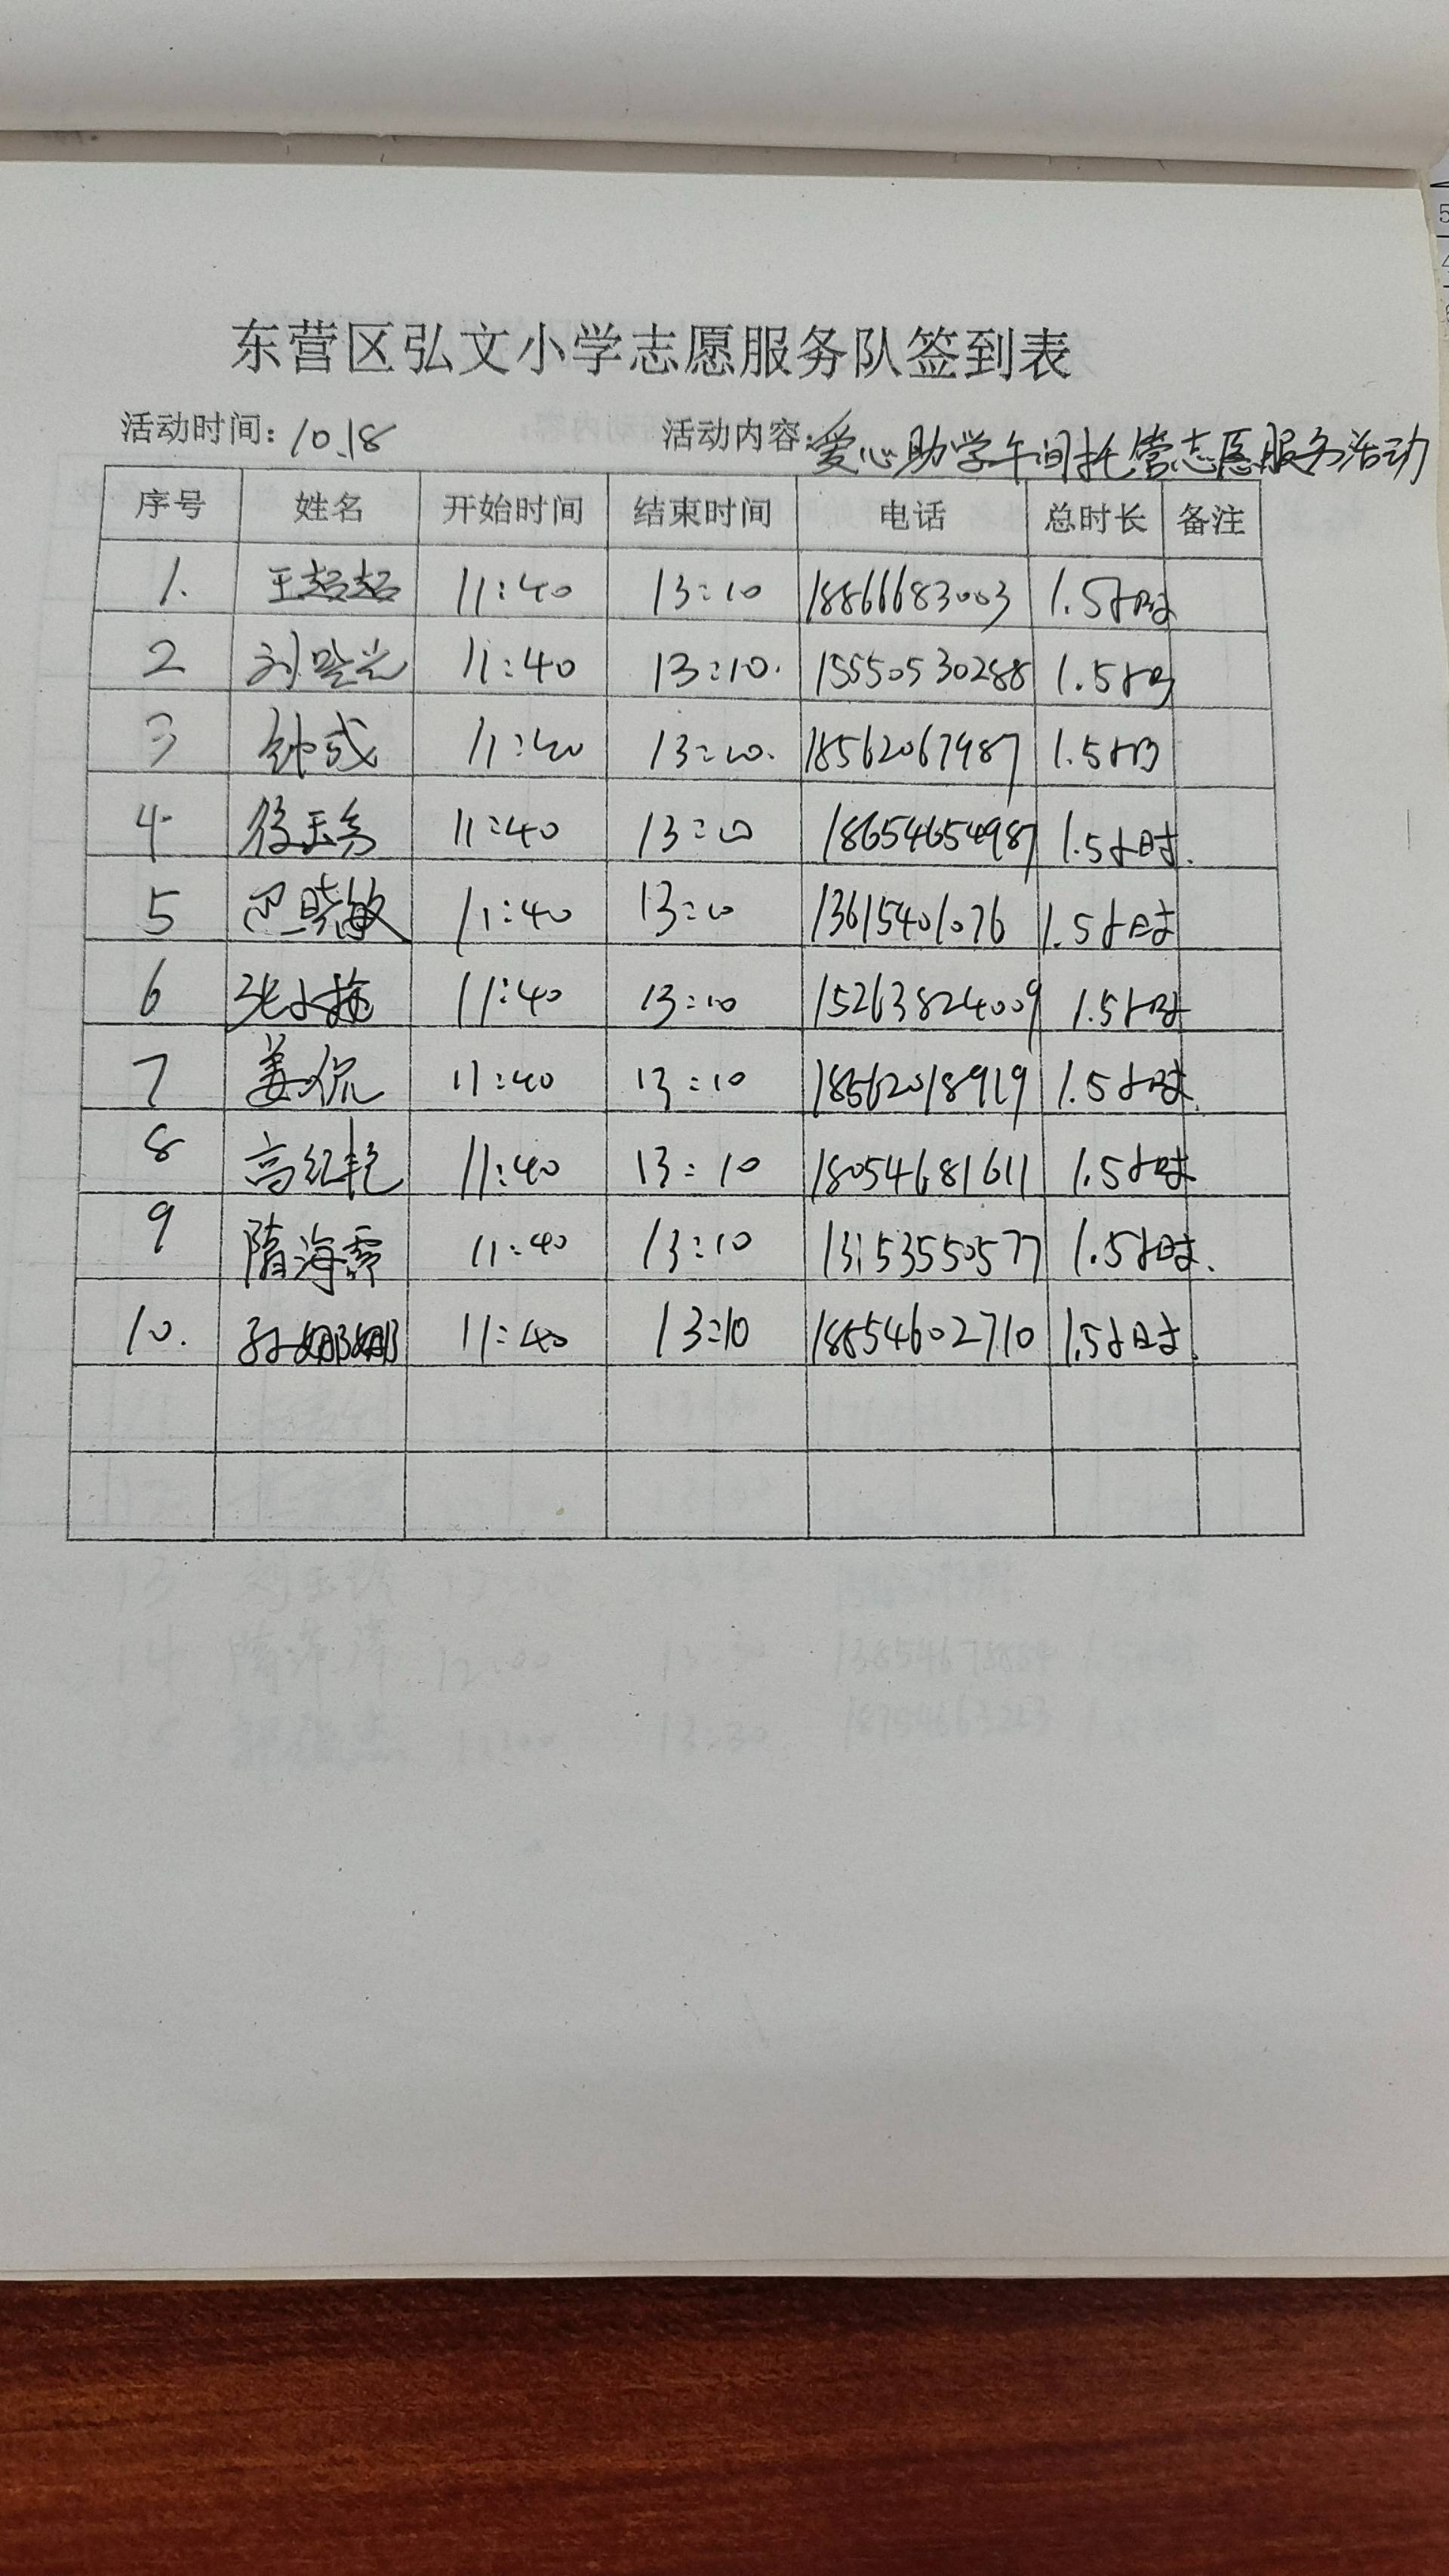 东营区弘文小学志愿服务队签到表
活动时间：10.18 活动内容：爱心助学午间托管志愿服务活动
序号 姓名 开始时间 结束时间 电话 总时长 备注
1. 王超超 11:40 13:10 18866683003 1.5小时
2 刘 光 11:40 13:10. 15550530288 1.5小时
3 钟成 11:40 13:10. 18562067987 1.5小时
4. 徐玉 11:40 13:10 18654654987 1.5小时.
5 巴晓敏 11:40 13:10 13615401076 1.5小时
6 张小 11:40 13:10 15263824009 1.5小时
7 姜侃 11:40 13:10 18562018919 1.5小时.
8 高红艳 11:40 13:10 18054681611 1.5小时
9 隋海霞 11:40 13:10 13153550577 1.5小时.
10. 孙娜娜 11:40 13:10 18854602710 1.5小时.